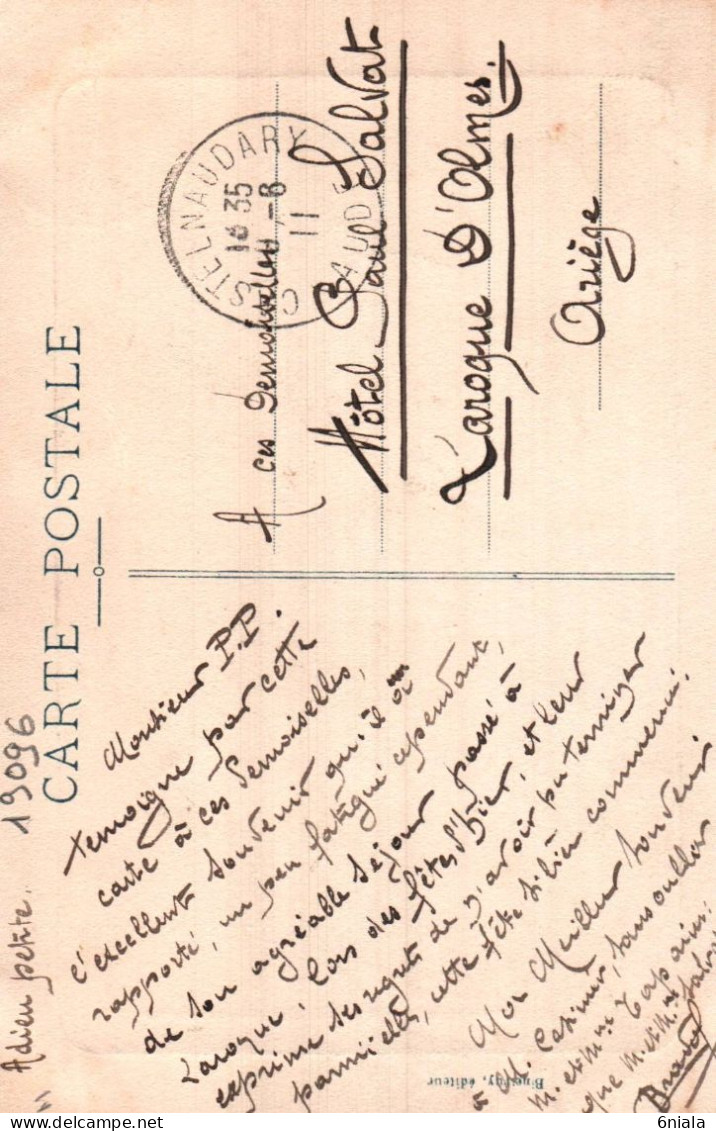 CARTE POSTALE
19096
Adieu petite.
Monsieur P.P.
temoigne par cette
carte à ces Demoiselles,
l'excellent souvenir qu'il à
rapporté, un peu fatigué cependant,
de son agréable séjour passé à
Laroque, lors des fêtes d'hier, et leur
exprime ses regrets de n'avoir pu terminer
parmi elles, cette fête si bien commencée.
Mon Meilleur souvenir
à M. Casimir, sans oublier
M. et Mme
que M. et Mme
CASTELNAUDARY
18 35
-6
11
AUDE
A ces Demoiselles
Hôtel Paul Salvat
Laroque D'Olmes.
Ariège
éditeur
6niala